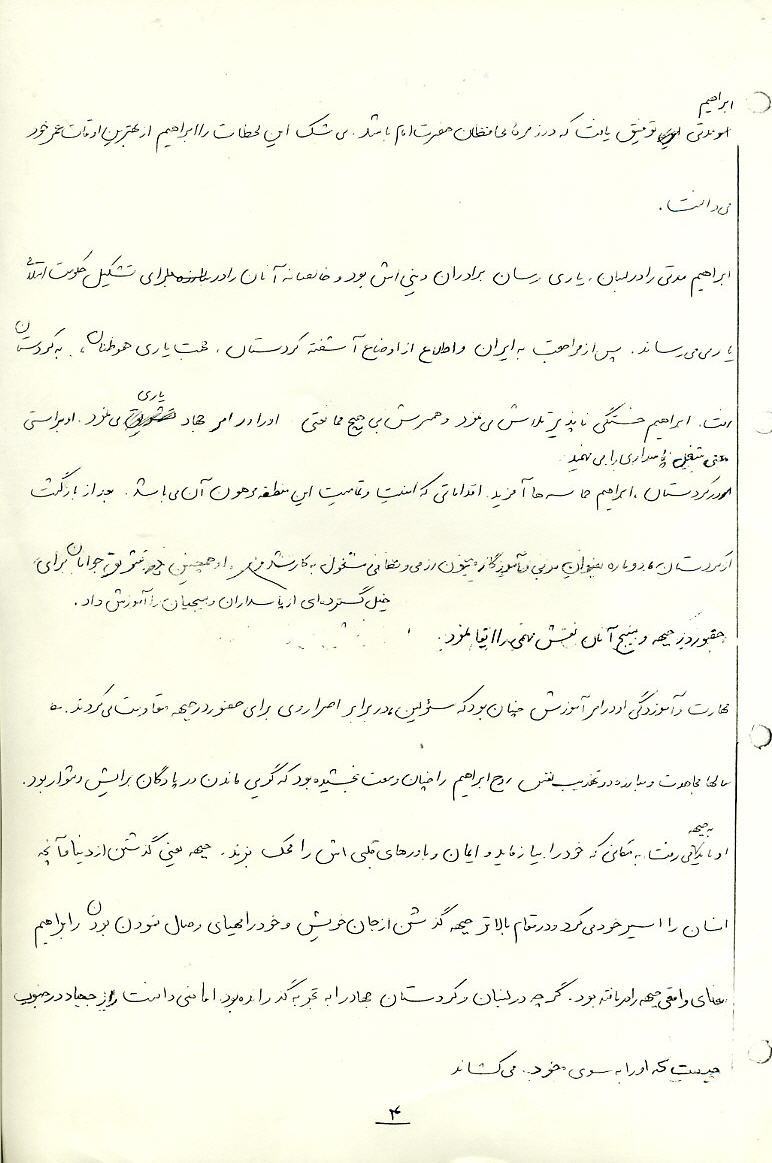 ابراهیم
مدتی توفیق یافت که در زمره محافظان حضرت امام باشد. بی شک این لحظات را ابراهیم از بهترین اوقات عمر خود
می دانست.
ابراهیم مدتی را در لبنان، یاری رسان برادران دینی اش بود و خالصانه آنان را در برای تشکیل حکومت انقلابی
یاری می رساند. پس از مراجعت به ایران و اطلاع از اوضاع آشفته کردستان، جهت یاری هموطنان، به کردستان
یاری
رفت. ابراهیم خستگی ناپذیر تلاش می نمود و همسرش بی هیچ ممانعتی او را در امر جهاد می نمود. او براستی
معنی پاسداری را می فهمید.
در کردستان، ابراهیم حماسه ها آفرید. اقداماتی که امنیت و تمامیت این منطقه مرهون آن می باشد. بعد از بازگشت
از کردستان، دوباره بعنوان مربی و آموزگار فنون رزمی و نظامی مشغول به کار شد. او همچنین تشویق جوانان برای
خیل گسترده ای از پاسداران و بسیجیان را آموزش داد.
حضور در جبهه و بسیج آنان نقش مهمی را ایفا نمود.
مهارت و آموزدگی او در امر آموزش چنان بود که مسؤلین، در برابر اصرار وی برای حضور در جبهه مقاومت می کردند.
سالها مجاهدت و مبارزه در تهذیب نفس روح ابراهیم را چنان وسعت بخشیده بود که گویی ماندن در پادگان برایش دشوار بود.
به جبهه
او باید می رفت به مکانی که خود را بیازماید و ایمان و باورهای قلبی اش را محک بزند. جبهه یعنی گذشتن از دنیا و آنچه
انسان را اسیر خود می کرد و در مقام بالاتر جبهه گذشتن از جان خویش و خود را مهیای وصال نمودن بود و ابراهیم
معنای واقعی جبهه را دریافته بود. گرچه در لبنان و کردستان جهاد را به تجربه گذرانده بود. اما نمی دانست راز جهاد در جنوب
چیست که او را به سوی خود. می کشاند
۴